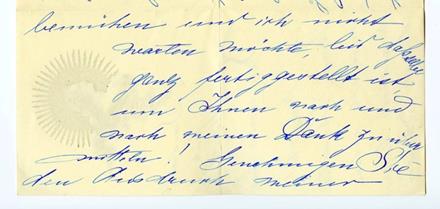 bemühen und ich nicht
warten möchte, bis dasselbe
ganz fertiggestellt ist
um Ihnen nach und
nach meinen Dank zu über
mitteln! Genehmigen Sie
den Ausdruck meiner